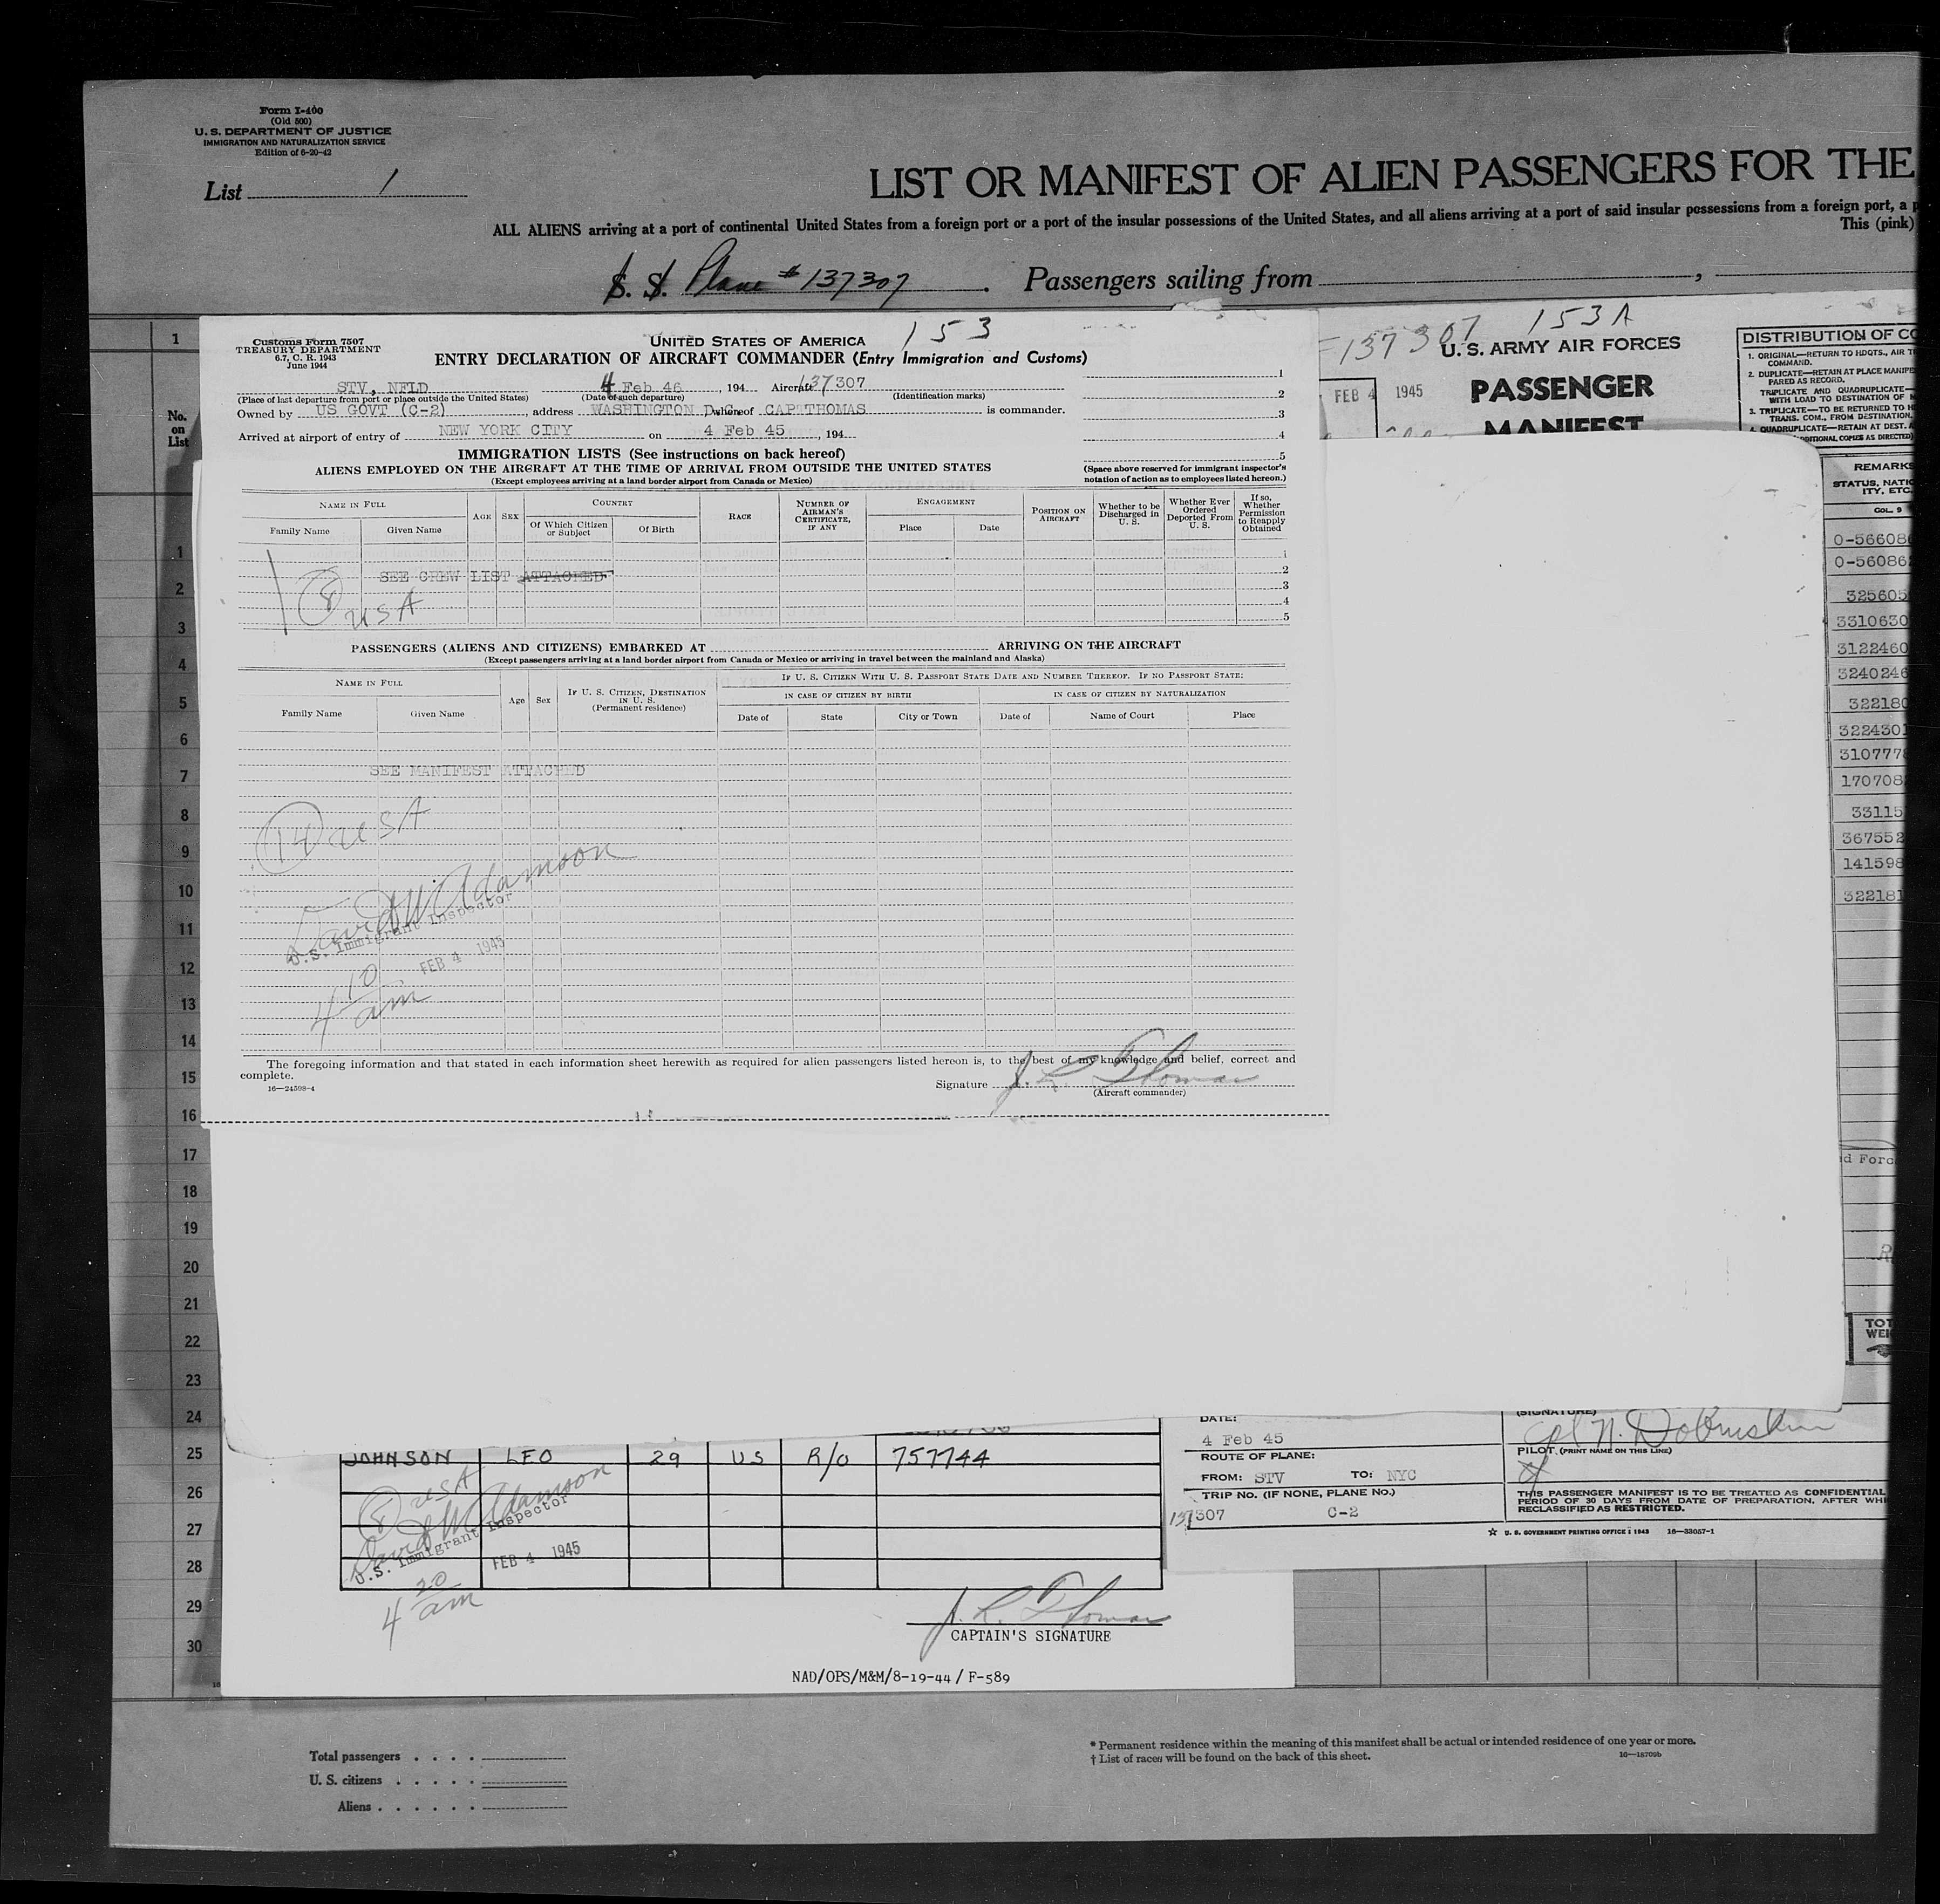 Form I-400
(Old 500)
U. S. DEPARTMENT OF JUSTICE
IMMIGRATION AND NATURALIZATION SERVICE
Edition of 6-20-42
List 1
LIST OR MANIFEST OF ALIEN PASSENGERS FOR THE
ALL ALIENS arriving at a port of continental United States from a foreign port or a port of the insular possessions of the United States, and all aliens arriving at a port of said insular possessions from a foreign port, a p
This (pink)
S. S. Plane # 137307 . Passengers sailing from ,
No.
on
List
1
2
3
4
5
6
7
8
9
10
11
12
13
14
15
16
17
18
19
20
21
22
23
24
25
26
27
28
29
30
Customs Form 7507
TREASURY DEPARTMENT
6.7, C. R. 1943
June 1944
UNITED STATES OF AMERICA
153
ENTRY DECLARATION OF AIRCRAFT COMMANDER (Entry Immigration and Customs)
STV, NFLD 4 Feb 46 , 194 Aircraft 137307
(Place of last departure from port or place outside the United States) (Date of such departure) (Identification marks)
Owned by US GOVT (C-2) , address WASHINGTON D.C. whereof CAPT THOMAS is commander.
Arrived at airport of entry of NEW YORK CITY on 4 Feb 45 , 194
1
2
3
4
5
IMMIGRATION LISTS (See instructions on back hereof)
ALIENS EMPLOYED ON THE AIRCRAFT AT THE TIME OF ARRIVAL FROM OUTSIDE THE UNITED STATES
(Except employees arriving at a land border airport from Canada or Mexico)
(Space above reserved for immigrant inspector's
notation of action as to employees listed hereon.)
NAME IN FULL
Family Name
Given Name
AGE
SEX
COUNTRY
Of Which Citizen
or Subject
Of Birth
RACE
NUMBER OF
AIRMAN'S
CERTIFICATE,
IF ANY
ENGAGEMENT
Place
Date
POSITION ON
AIRCRAFT
Whether to be
Discharged in
U. S.
Whether Ever
Ordered
Deported From
U. S.
If so,
Whether
Permission
to Reapply
Obtained
1
2
3
4
5
SEE CREW LIST ATTACHED
8 USA
PASSENGERS (ALIENS AND CITIZENS) EMBARKED AT ARRIVING ON THE AIRCRAFT
(Except passengers arriving at a land border airport from Canada or Mexico or arriving in travel between the mainland and Alaska)
NAME IN FULL
Family Name
Given Name
Age
Sex
IF U. S. CITIZEN, DESTINATION
IN U. S.
(Permanent residence)
IF U. S. CITIZEN WITH U. S. PASSPORT STATE DATE AND NUMBER THEREOF. IF NO PASSPORT STATE:
IN CASE OF CITIZEN BY BIRTH
IN CASE OF CITIZEN BY NATURALIZATION
Date of
State
City or Town
Date of
Name of Court
Place
SEE MANIFEST ATTACHED
14 USA
David W Adamson
U.S. Immigrant Inspector
FEB 4 1945
4 10 am
The foregoing information and that stated in each information sheet herewith as required for alien passengers listed hereon is, to the best of my knowledge and belief, correct and
complete.
16—24598-4
Signature J. R. Thomas
(Aircraft commander)
137307
153A
FEB 4 1945
U. S. ARMY AIR FORCES
PASSENGER
MANIFEST
DISTRIBUTION OF CO
1. ORIGINAL—RETURN TO HDQTS., AIR T
COMMAND.
2. DUPLICATE—RETAIN AT PLACE MANIFE
PARED AS RECORD.
TRIPLICATE AND QUADRUPLICATE—
WITH LOAD TO DESTINATION OF M
3. TRIPLICATE—TO BE RETURNED TO H
TRANS. COM., FROM DESTINATION.
4. QUADRUPLICATE—RETAIN AT DEST. A
REMARKS
STATUS, NATIO
ITY, ETC.
COL. 9
0-56608
0-56086
325605
3310630
3122460
3240246
322180
3224301
3107778
170708
33115
367552
141598
322181
d Forc
TOT
WEI
JOHNSON LEO 29 US R/O 757744
8 USA
David W Adamson
U.S. Immigrant Inspector
FEB 4 1945
4 20 am
J. R. Thomas
CAPTAIN'S SIGNATURE
NAD/OPS/M&M/8-19-44 / F-589
DATE:
4 Feb 45
ROUTE OF PLANE:
FROM: STV TO: NYC
TRIP NO. (IF NONE, PLANE NO.)
137307 C-2
(SIGNATURE)
Cpl N. Dobruskin
PILOT (PRINT NAME ON THIS LINE)
THIS PASSENGER MANIFEST IS TO BE TREATED AS CONFIDENTIAL
PERIOD OF 30 DAYS FROM DATE OF PREPARATION, AFTER WHI
RECLASSIFIED AS RESTRICTED.
☆ U. S. GOVERNMENT PRINTING OFFICE : 1943 16—33057-1
Total passengers . . . .
U. S. citizens . . . . .
Aliens . . . . . .
* Permanent residence within the meaning of this manifest shall be actual or intended residence of one year or more.
† List of races will be found on the back of this sheet.
16—18702b